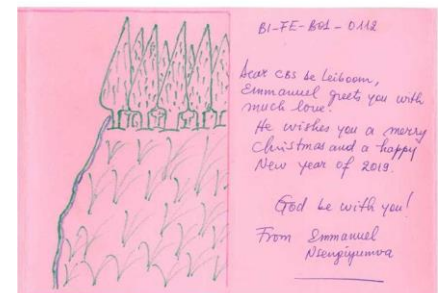 BI-FE-B01-0112
Dear CBS De Leiboom,
Emmanuel greets you with
much love.
He wishes you a merry
Christmas and a happy
New year of 2019.
God be with you!
From Emmanuel
Nsengiyumva